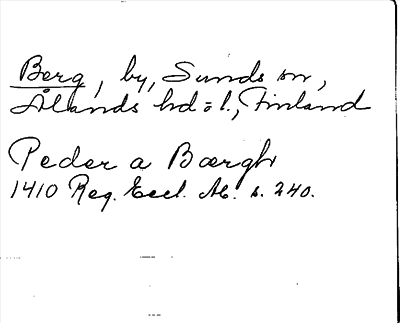 Berg, by, Sunds sn,
Ålands hd o l., Finland
Peder a Bærgh
1410 Reg. Eccl. Ab. s. 240.